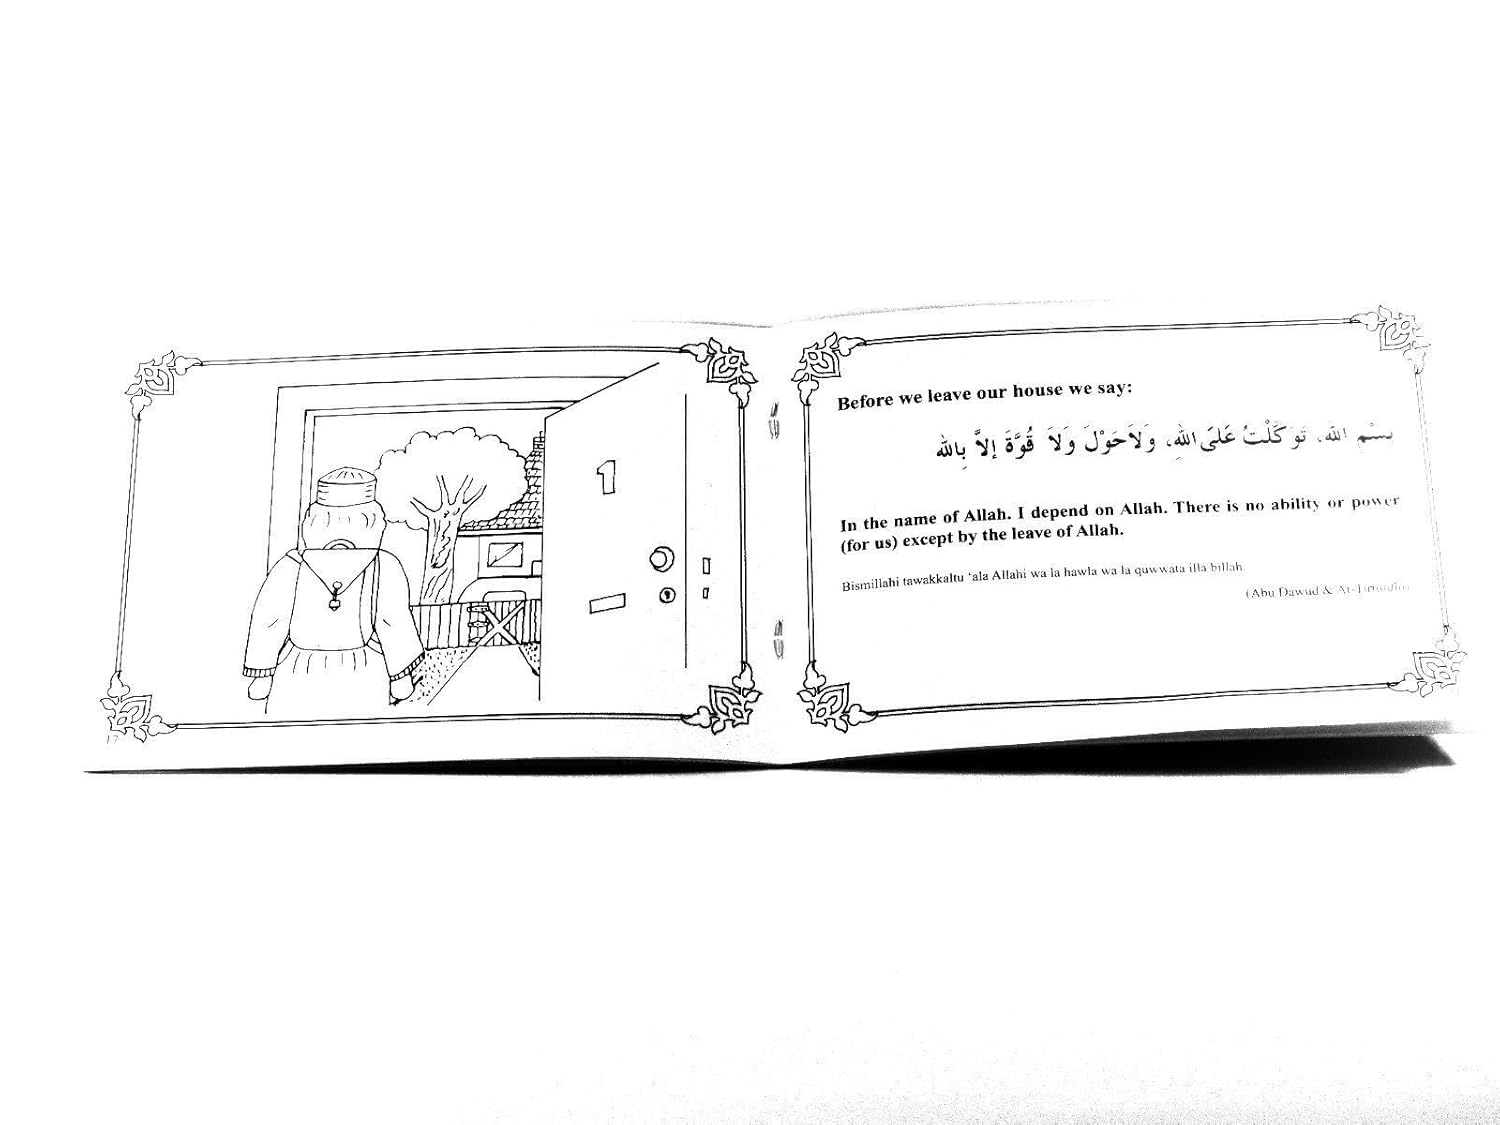 1
17
Before we leave our house we say:
بِسْمِ اللهِ، تَوَكَّلْتُ عَلَى اللهِ، وَلاَحَوْلَ وَلاَ قُوَّةَ إِلاَّ بِاللهِ
In the name of Allah. I depend on Allah. There is no ability or power
(for us) except by the leave of Allah.
Bismillahi tawakkaltu ‘ala Allahi wa la hawla wa la quwwata illa billah.
(Abu Dawud & At-Tirmidhi)